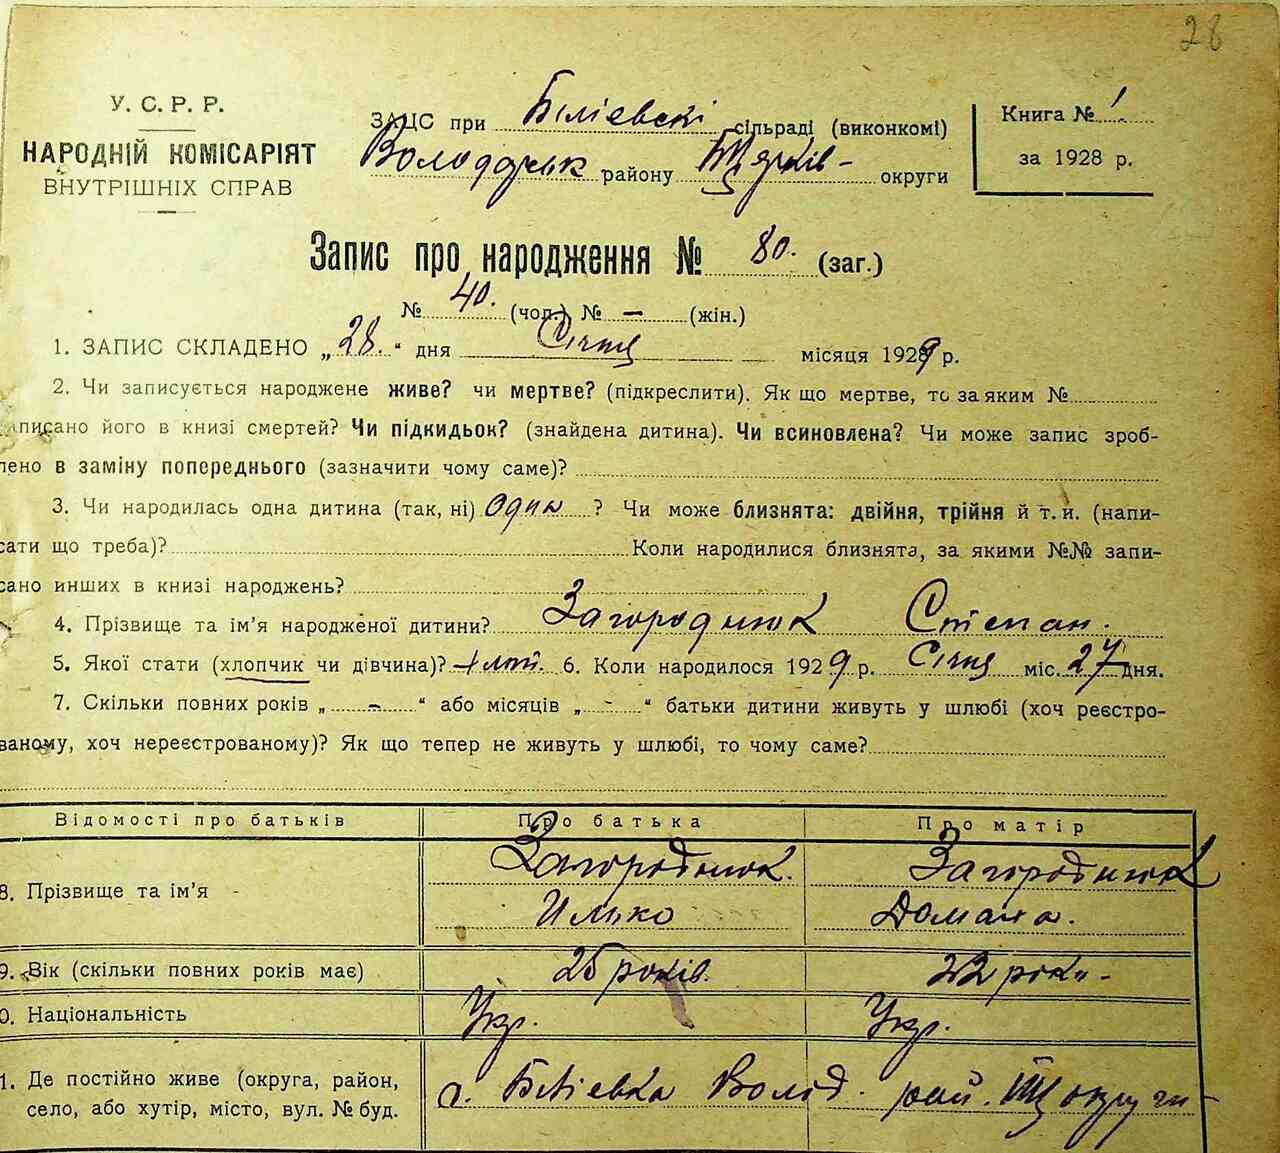 28
У. С. Р. Р.
НАРОДНІЙ КОМІСАРІЯТ
ВНУТРІШНІХ СПРАВ
ЗАЦС при Біліевскі сільраді (виконкомі)
Володарськ району округи
Книга № 1
за 1928 р.
Запис про народження № 80. (заг.)
№ 40. (чол.) № — (жін.)
1. ЗАПИС СКЛАДЕНО „28.“ дня Січня місяця 1929 р.
2. Чи записується народжене живе? чи мертве? (підкреслити). Як що мертве, то за яким №
аписано його в книзі смертей? Чи підкидьок? (знайдена дитина). Чи всиновлена? Чи може запис зроб-
лено в заміну попереднього (зазначити чому саме)?
3. Чи народилась одна дитина (так, ні) Один ? Чи може близнята: двійня, трійня й т. и. (напи-
сати що треба)? Коли народилися близнята, за якими №№ запи-
сано инших в книзі народжень?
4. Прізвище та ім’я народженої дитини? Загороднюк Степан.
5. Якої стати (хлопчик чи дівчина)? 6. Коли народилося 1929 р. Січня міс. 27 дня.
7. Скільки повних років „ - “ або місяців „ - “ батьки дитини живуть у шлюбі (хоч реєстро-
ваному, хоч нереєстрованому)? Як що тепер не живуть у шлюбі, то чому саме?
Відомості про батьків Про батька Про матір
8. Прізвище та ім’я - Загороднюк. Илько Загороднюк Домана.
9. Вік (скільки повних років має) 25 років. 22 роки -
0. Національність Укр. Укр.
1. Де постійно живе (округа, район, с. Біліевка Волод. рай. округи
село, або хутір, місто, вул. № буд.